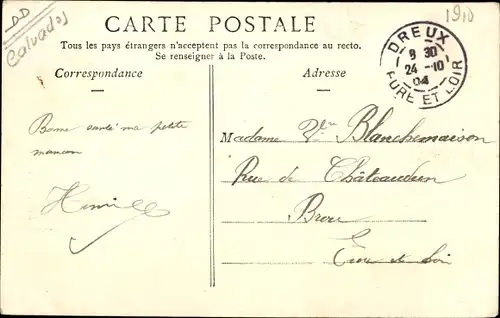 DD
Calvados
1910
CARTE POSTALE
Tous les pays étrangers n'acceptent pas la correspondance au recto.
Se renseigner à la Poste.
Correspondance
Adresse
DREUX
8 30
24 -10
04
EURE ET LOIR
Bonne santé ma petite
maman
Madame Vve Blanchemaison
Rue de Châteaudun
Brou
Eure et Loir